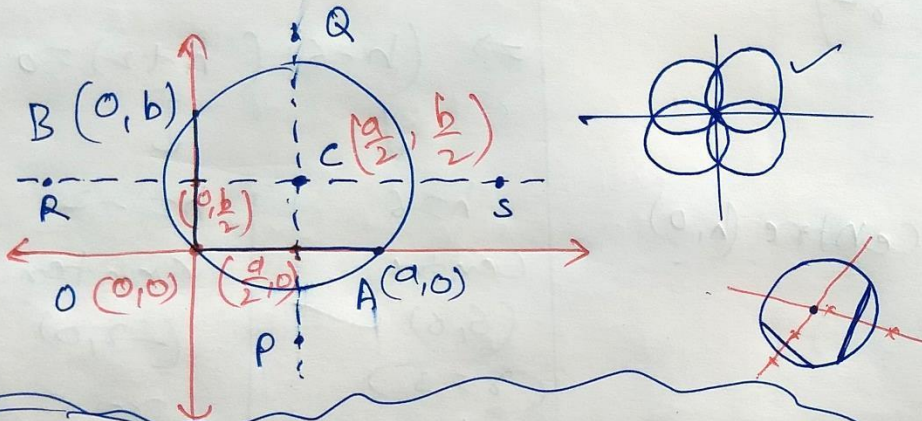 Q
B (0, b)
C (a/2, b/2)
R
(0, b/2)
S
O (0,0)
(a/2, 0)
A (a,0)
P